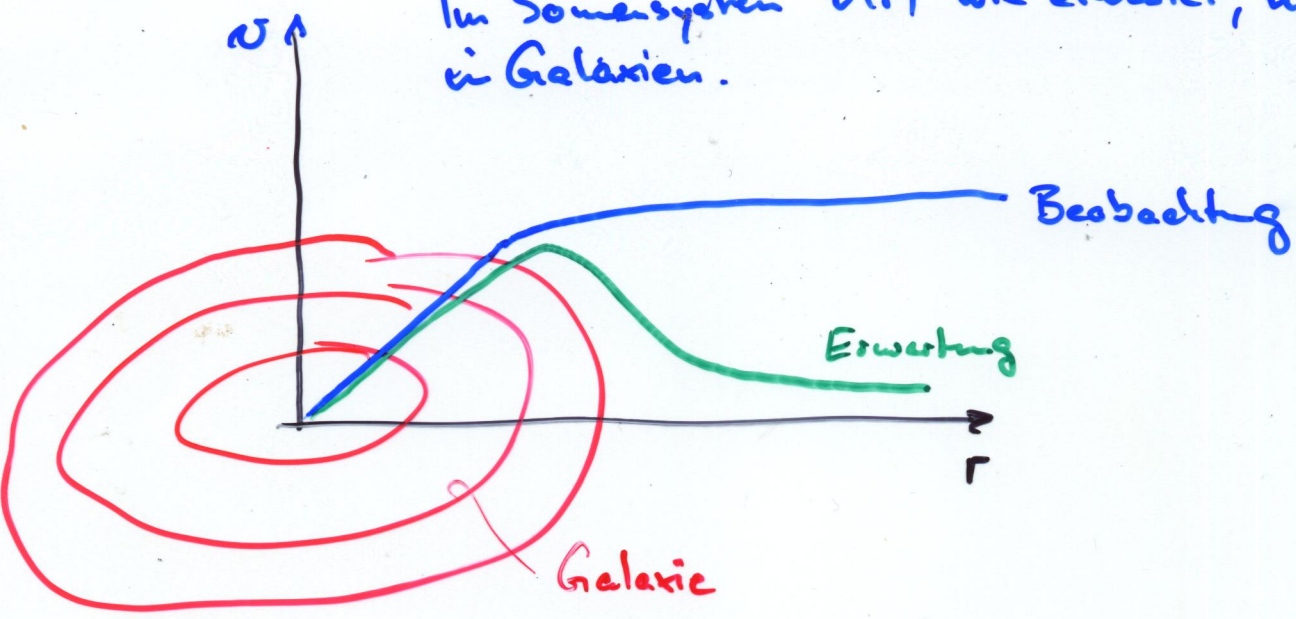 Im Sonnensystem v(r) wie erwartet,
in Galaxien.
v
Beobachtung
Erwartung
r
Galaxie